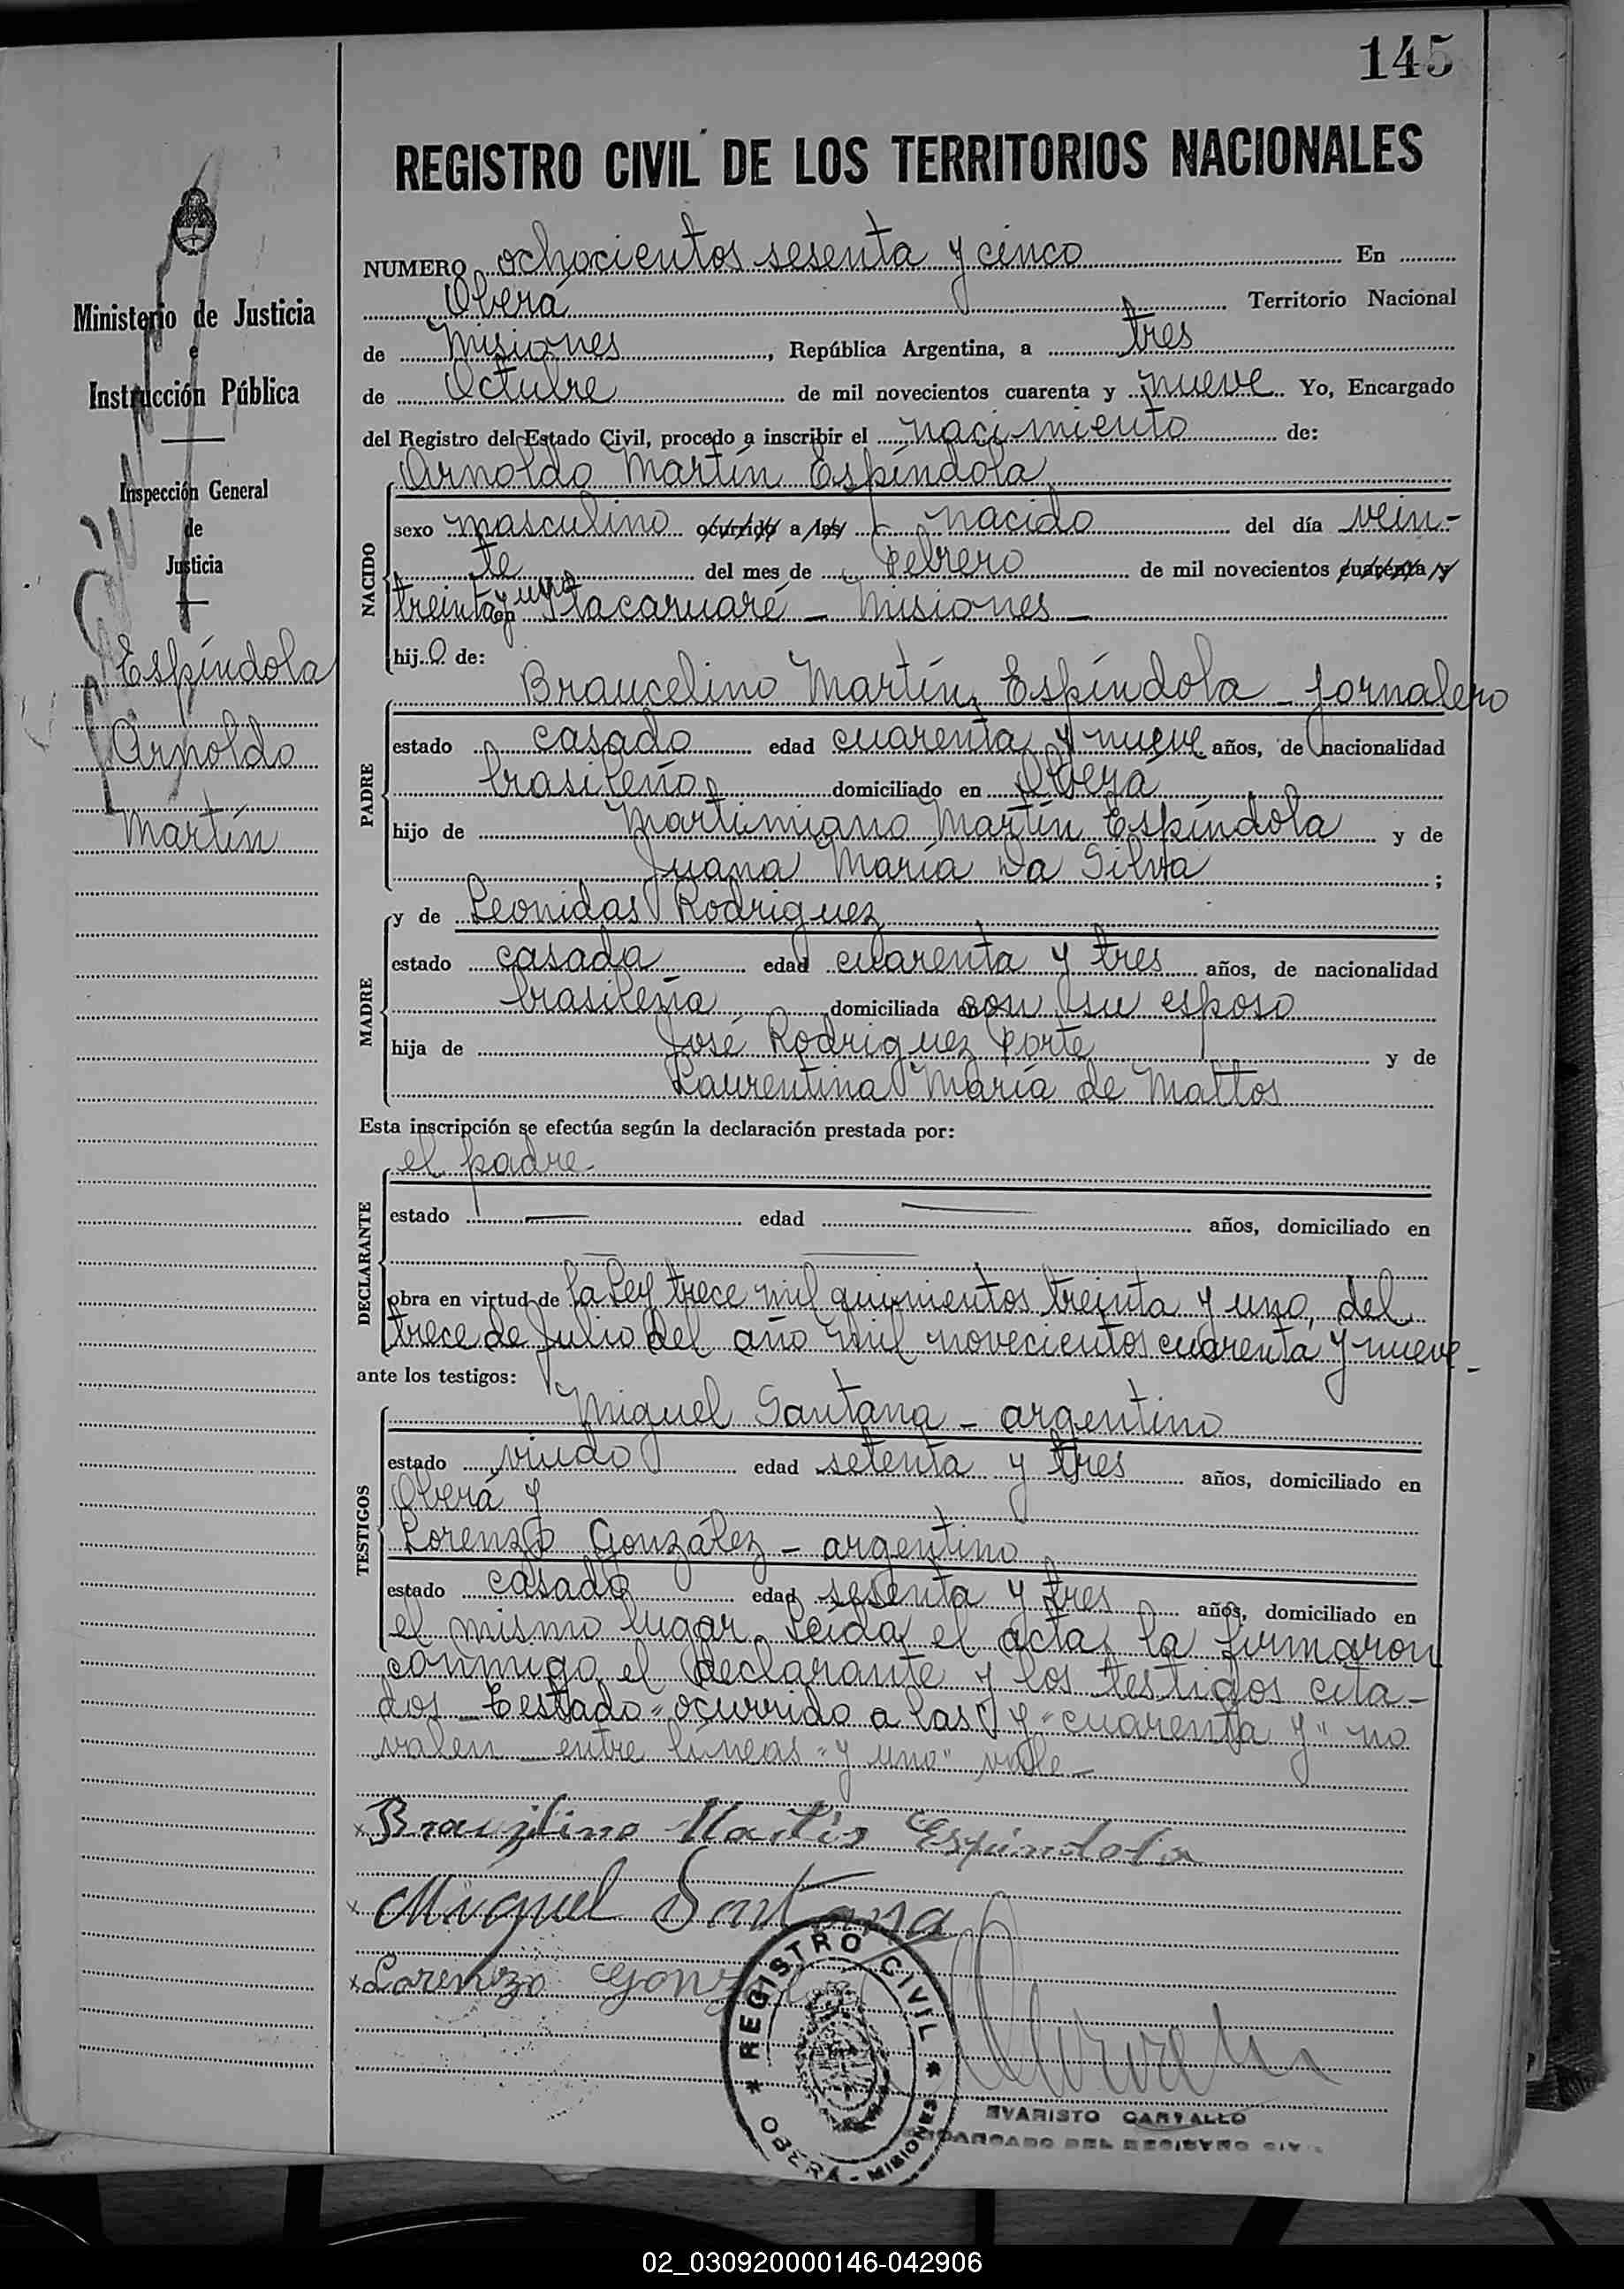 145
REGISTRO CIVIL DE LOS TERRITORIOS NACIONALES
NUMERO ochocientos sesenta y cinco En
Oberá Territorio Nacional
de Misiones, República Argentina, a tres
de Octubre de mil novecientos cuarenta y nueve Yo, Encargado
del Registro del Estado Civil, procedo a inscribir el nacimiento de:
Ministerio de Justicia
e
Instrucción Pública
Inspección General
de
Justicia
Espíndola
Arnoldo
Martín
NACIDO
Arnoldo Martín Espíndola
sexo masculino ocurrido a las nacido del día vein-
te del mes de febrero de mil novecientos cuarenta y
treinta y uno en Itacaruaré - Misiones -
hijo de:
PADRE
Braucelino Martín Espíndola - jornalero
estado casado edad cuarenta y nueve años, de nacionalidad
brasileño domiciliado en Oberá
hijo de Martimiano Martín Espíndola y de
Juana María Da Silva ;
MADRE
y de Leonidas Rodriguez
estado casada edad cuarenta y tres años, de nacionalidad
brasileña domiciliada con su esposo
hija de José Rodriguez Porte y de
Laurentina María de Mattos
Esta inscripción se efectúa según la declaración prestada por:
DECLARANTE
el padre
estado — edad — años, domiciliado en
obra en virtud de la Ley trece mil quinientos treinta y uno, del
trece de Julio del año mil novecientos cuarenta y nueve -
ante los testigos:
TESTIGOS
Miguel Santana - argentino
estado viudo edad setenta y tres años, domiciliado en
Oberá y
Lorenzo González - argentino
estado casado edad sesenta y tres años, domiciliado en
el mismo lugar. Leída el acta, la firmaron
conmigo el declarante y los testigos cita-
dos - Testado "ocurrido a las" y "cuarenta y" no
valen - entre líneas "y uno" vale -
x Brauzilino Martis Espindola
x Miguel Santana
x Lorenzo
REGISTRO CIVIL
OBERÁ - MISIONES
EVARISTO CARVALLO
ENCARGADO DEL REGISTRO CIVIL
02_030920000146-042906